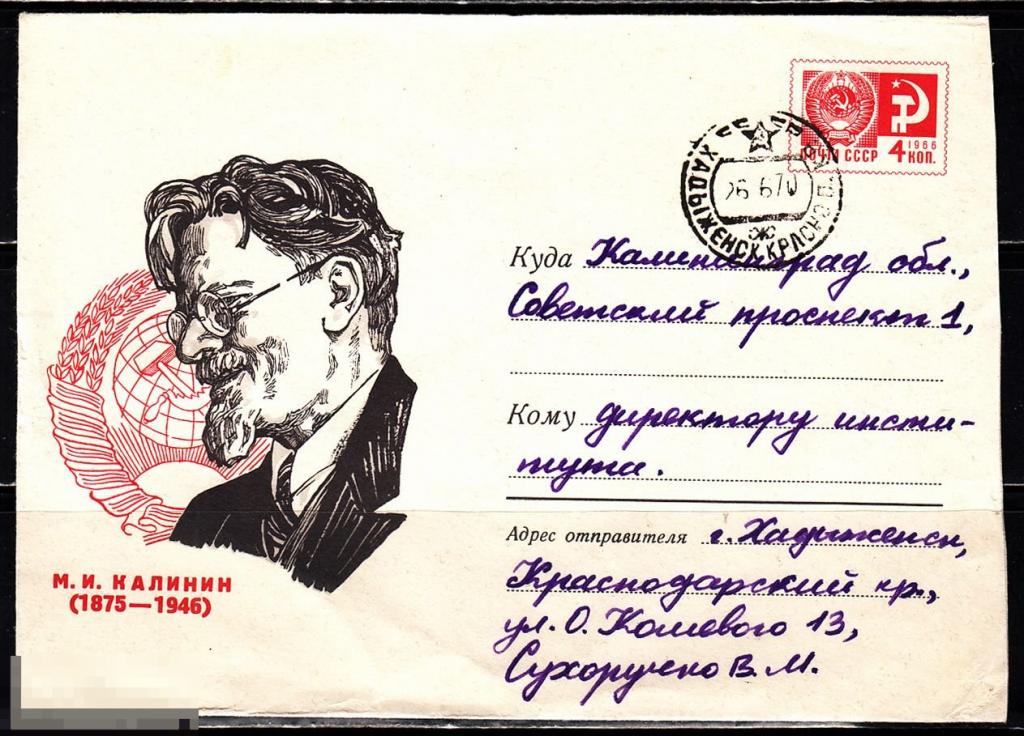 ПОЧТА СССР 4 КОП. 1966
ХАДЫЖЕНСК КРАСНОД.
26 6 70
Куда Калининград обл.,
Советский проспект 1,
Кому директору инсти-
тута.
Адрес отправителя г. Хадыженск,
Краснодарский кр.,
ул. О. Кошевого 13,
Сухоручко В. М.
М. И. КАЛИНИН
(1875—1946)